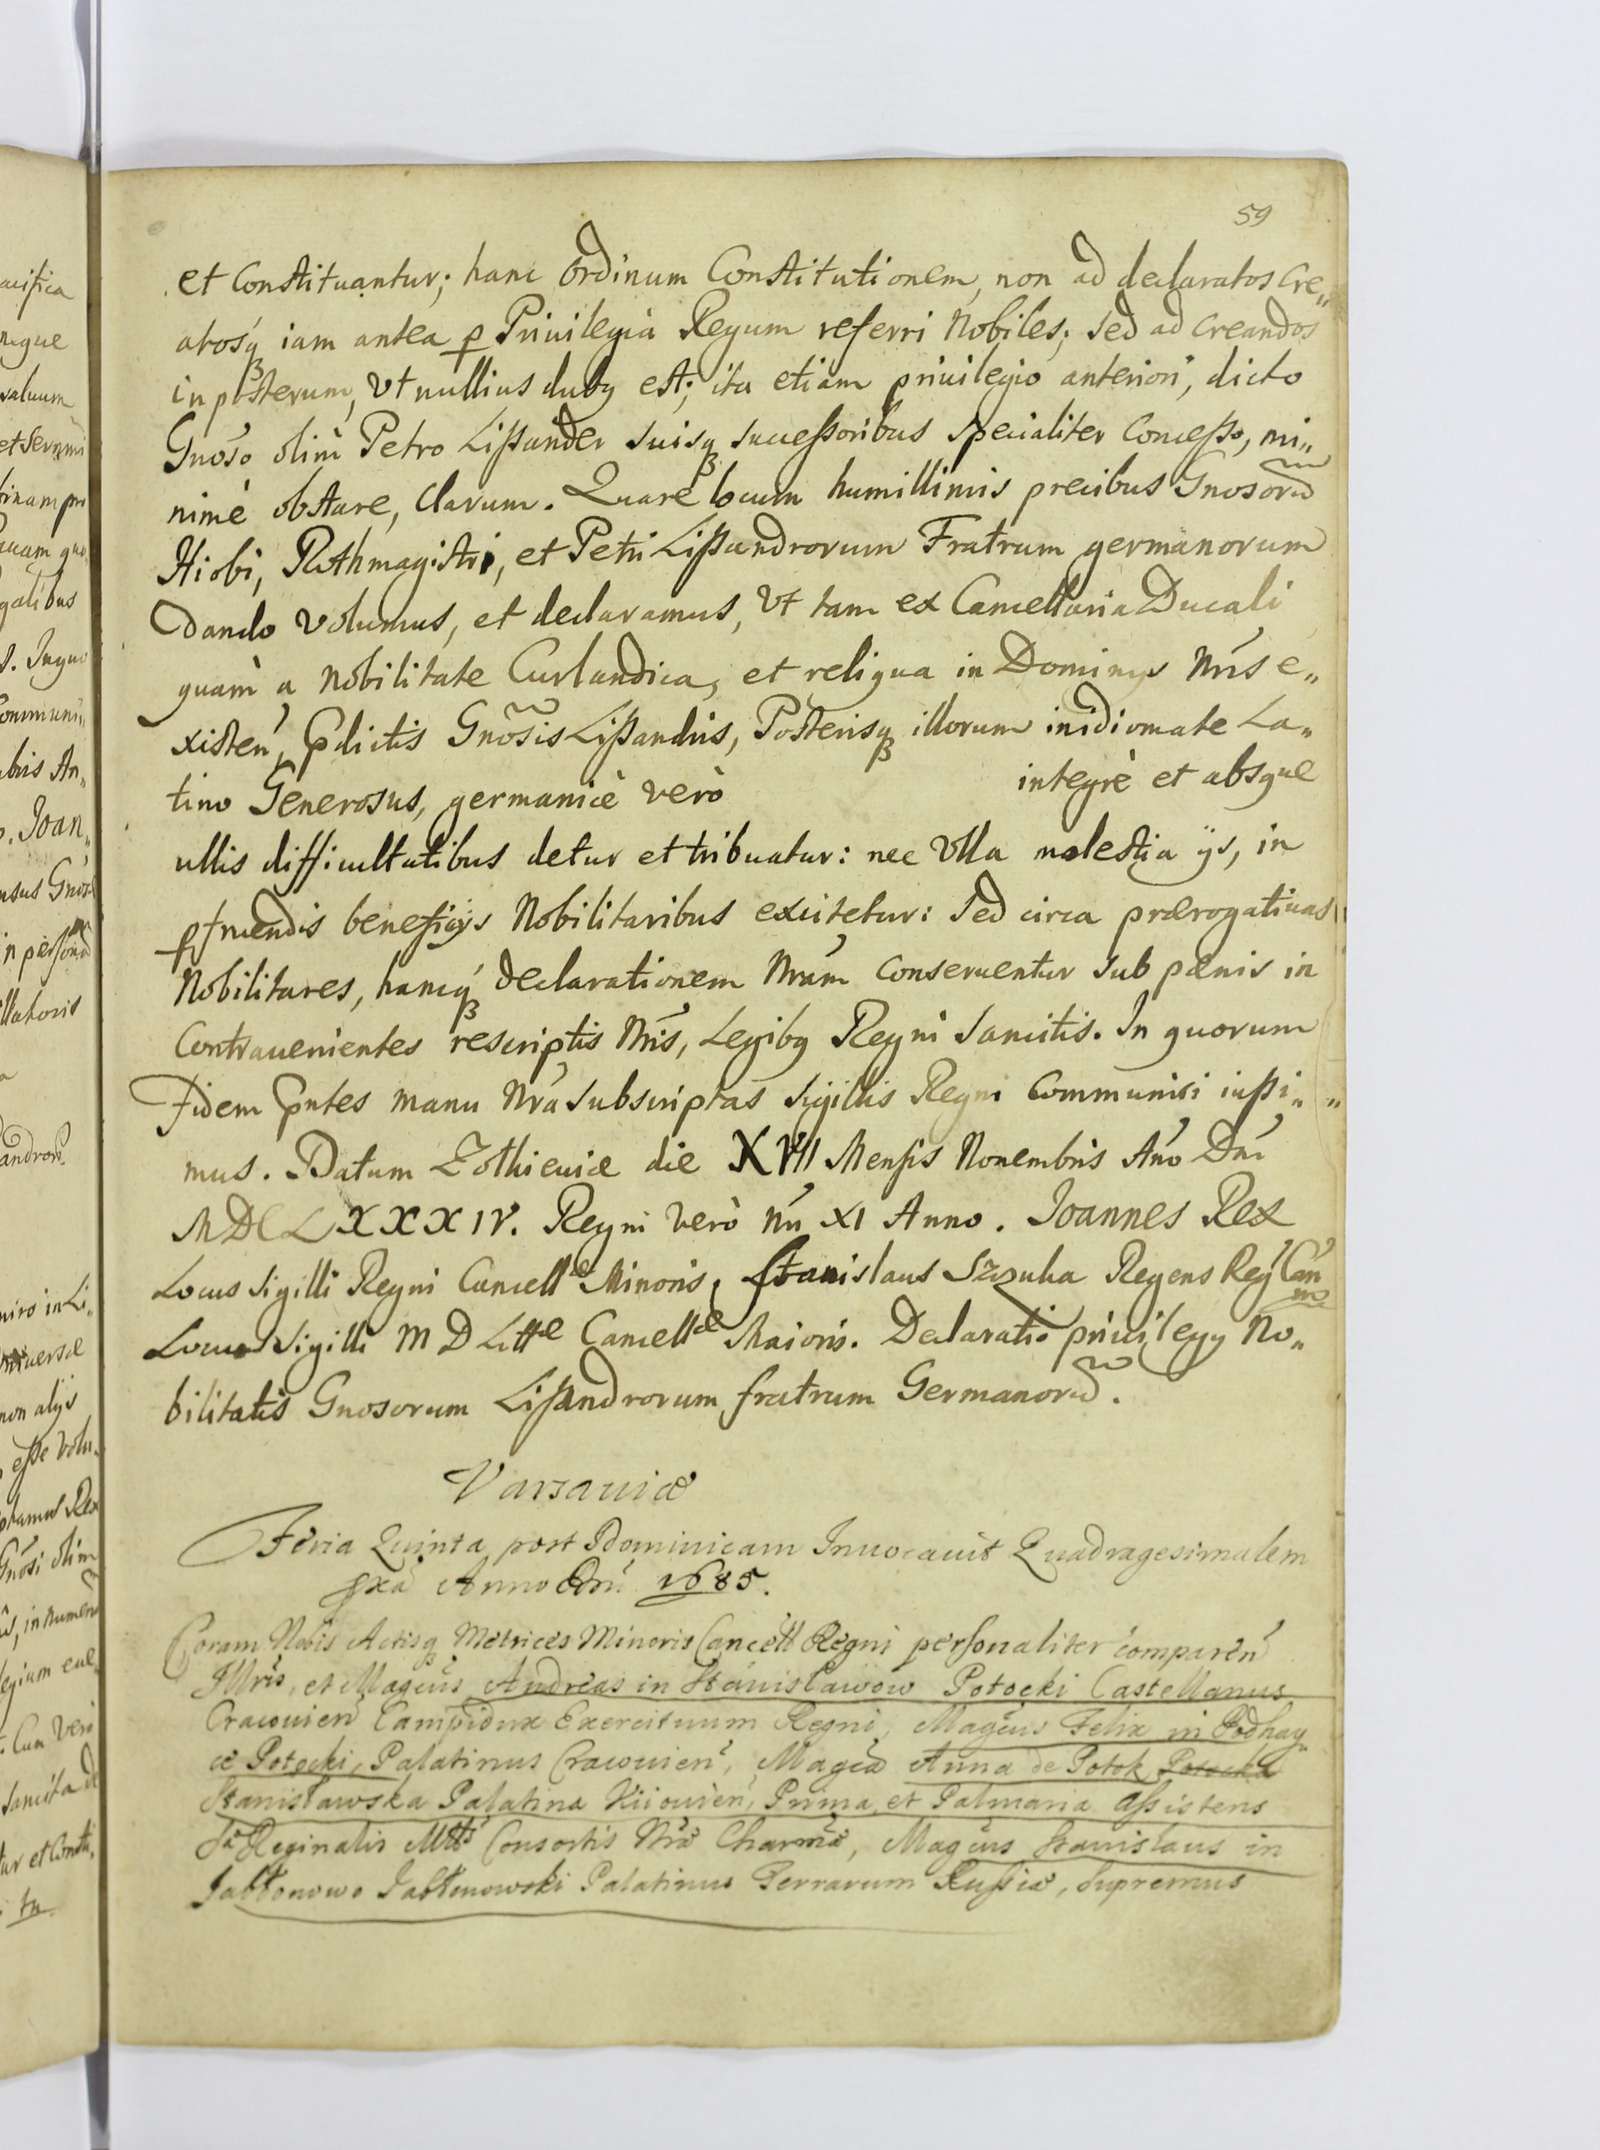 59
et Constituantur; hanc Ordinum Constitutionem, non ad declaratos Cre„
atosq́ iam antea ꝑ Priuilegia Regum referri Nobiles; sed ad creandos
in posterum, Vt nullius duby est; ita etiam priuilegio anteriori, dicto
Gnoso olim Petro Lißander suisq́ successoribus specialiter Concesso, mi„
nimè obstare, Clarum. Quare locum humillimis precibus Gnosorũ
Hiobi, Rothmagistri, et Petri Lißandrorum Fratrum germanorum
Dando Volumus, et declaramus, Vt tam ex Cancellaria Ducali
quam a Nobilitate Curlandica, et reliqua in Dominys Nris e„
xisten, Pdictis Gnosis Lißandris, Posterisq́ illorum in idiomate La„
tino Generosus, germanicè verò integrè et absque
ullis difficultatibus detur et tribuatur: nec Vlla molestia ijs, in
ꝑfruendis beneficijs Nobilitaribus excitetur: Sed circa prærogatiuas
Nobilitares, hancq́ declarationem Nram Conseruentur sub pœnis in
Contrauenientes rescriptis Nris, Legibq Regni Sancitis. In quorum
Fidem Pntes manu Nra subscriptas Sigillis Regni Communiri iußi„
mus. Datum Zolkieuiæ die XVII Mensis Nouembris Ano Dni
MDCLXXXIV. Regni verò Nri XI Anno. Joannes Rex
Locus Sigilli Regni Cancellæ Minoris, Stanislaus Szczuka Regens Reg Can
Locus Sigilli M D Littæ Cancellæ Maioris. Declaratio priuilegy No„
bilitatis Gnosorum Lißandrorum fratrum Germanorũ.
Varsauiæ
Feria Quinta post Dominicam Inuocauit Quadragesimalem
pxa Anno Dni 1685.
Coram Nobis Actisq́ Metrices Minoris Cancell Regni personaliter comparen
Illris, et Magcus Andreas in Stanisławow Potocki Castellanus
Cracouien Campidux Exercituum Regni, Magcus Felix in Podhay„
ce Potocki, Palatinus Cracouien, Magca Anna de Potok Potocka
Stanisławska Palatina Kiiouien, Prima et Palmaria Aßistens
Sæ Reginalis Mttis Consortis Nræ Charmæ, Magcus Stanislaus in
Jabłonowo Jabłonowski Palatinus Terrarum Rußiæ, Supremus